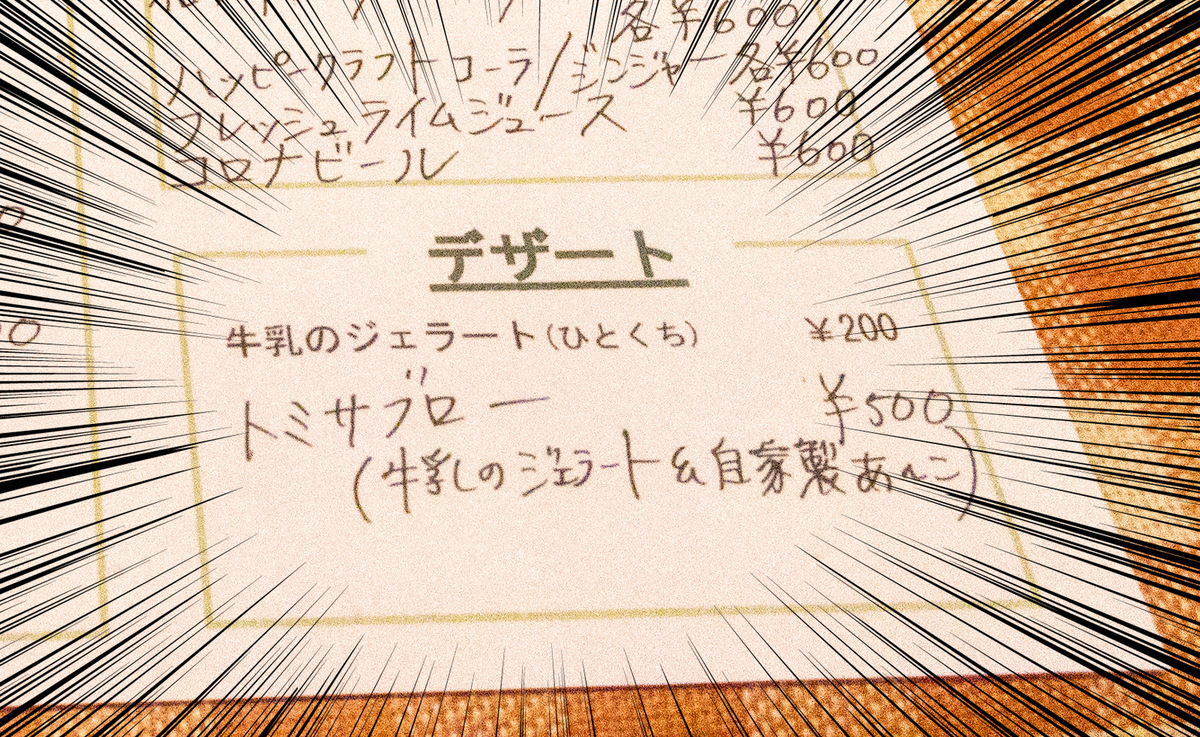 各¥600
ハッピークラフトコーラ/ジンジャー 各¥600
フレッシュライムジュース ¥600
コロナビール ¥600
デザート
牛乳のジェラート(ひとくち) ¥200
トミサブロー ¥500
(牛乳のジェラート & 自家製あんこ)